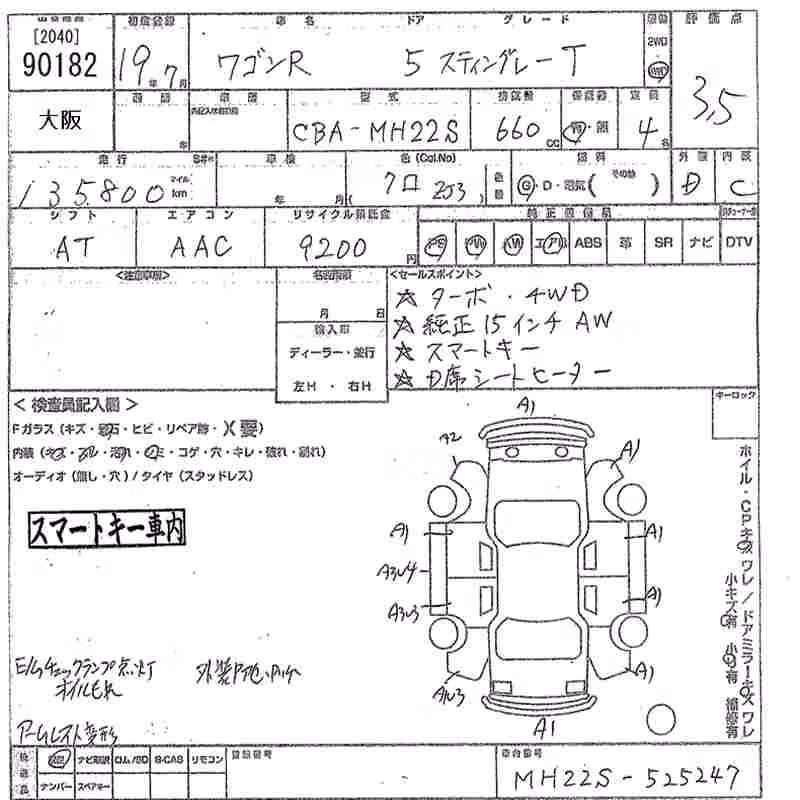 [2040]
90182
初度登録
19年7月
車名 ドア グレード
ワゴンR 5 スティングレーT
2WD
評価点
3,5
大阪
年
型式
CBA-MH22S
排気量
660 cc
定員
4名
走行
135,800 km
マイル
車検
年 月
色(Col.No)
クロ ZJ3
燃料
G・D・電気( その他 )
外装
D
内装
C
シフト
AT
エアコン
AAC
リサイクル預託金
9200円
純正装備品
PS PW AW エアB ABS 革 SR ナビ DTV
<注意事項>
名変期限
月 日
輸入車
ディーラー・並行
左H ・ 右H
<セールスポイント>
☆ ターボ・4WD
☆ 純正15インチAW
☆ スマートキー
☆ D席シートヒーター
< 検査員記入欄 >
Fガラス(キズ・飛石・ヒビ・リペア跡・X要)
内装(キズ・スレ・汚れ・シミ・コゲ・穴・キレ・破れ・割れ)
オーディオ(無し・穴)/タイヤ(スタッドレス)
スマートキー車内
キーロック
A1
A2 A1
A1 A1
A3
A3 A1
A1
A1
ホイル・CPキズ ワレ/ドアミラーキズ ワレ
小キズ有 小凹有 補修有
E/Mチェックランプ点灯
オイルもれ
アームレスト変形
ナビ取説 ロム/SD B-CAS リモコン
ナンバー スペアキー
登録番号
車台番号
MH22S-525247